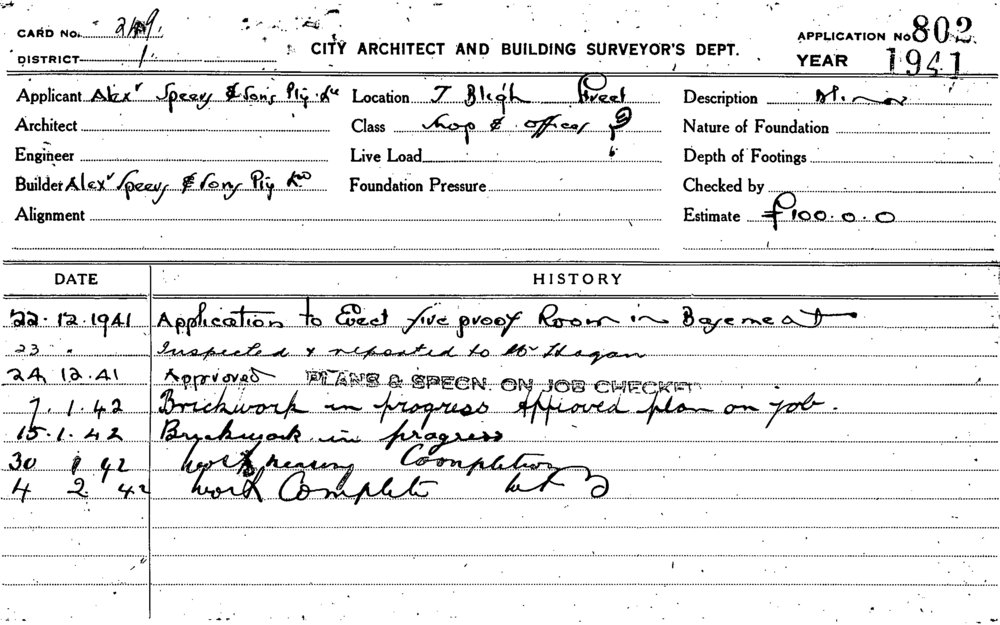 CARD No.
APPLICATION No 802
DISTRICT 1
CITY ARCHITECT AND BUILDING SURVEYOR'S DEPT.
YEAR 1941
Applicant Alexr Speers & Sons Pty. Location 7 Bligh Street Description
Architect Class Shop & offices Nature of Foundation
Engineer Live Load Depth of Footings
Builder Alexr Speers & Sons Pty Foundation Pressure Checked by
Alignment Estimate £100.0.0
DATE HISTORY
22.12.1941 Application to Erect fire proof Room in Basement
23 " Inspected & reported to Mr Hagan
24.12.41 Approved PLANS & SPECN. ON JOB CHECKED
7.1.42 Brickwork in progress Approved plan on job.
15.1.42 Brickwork in progress
30 1 42 Work nearing Completion
4 2 42 Work Complete